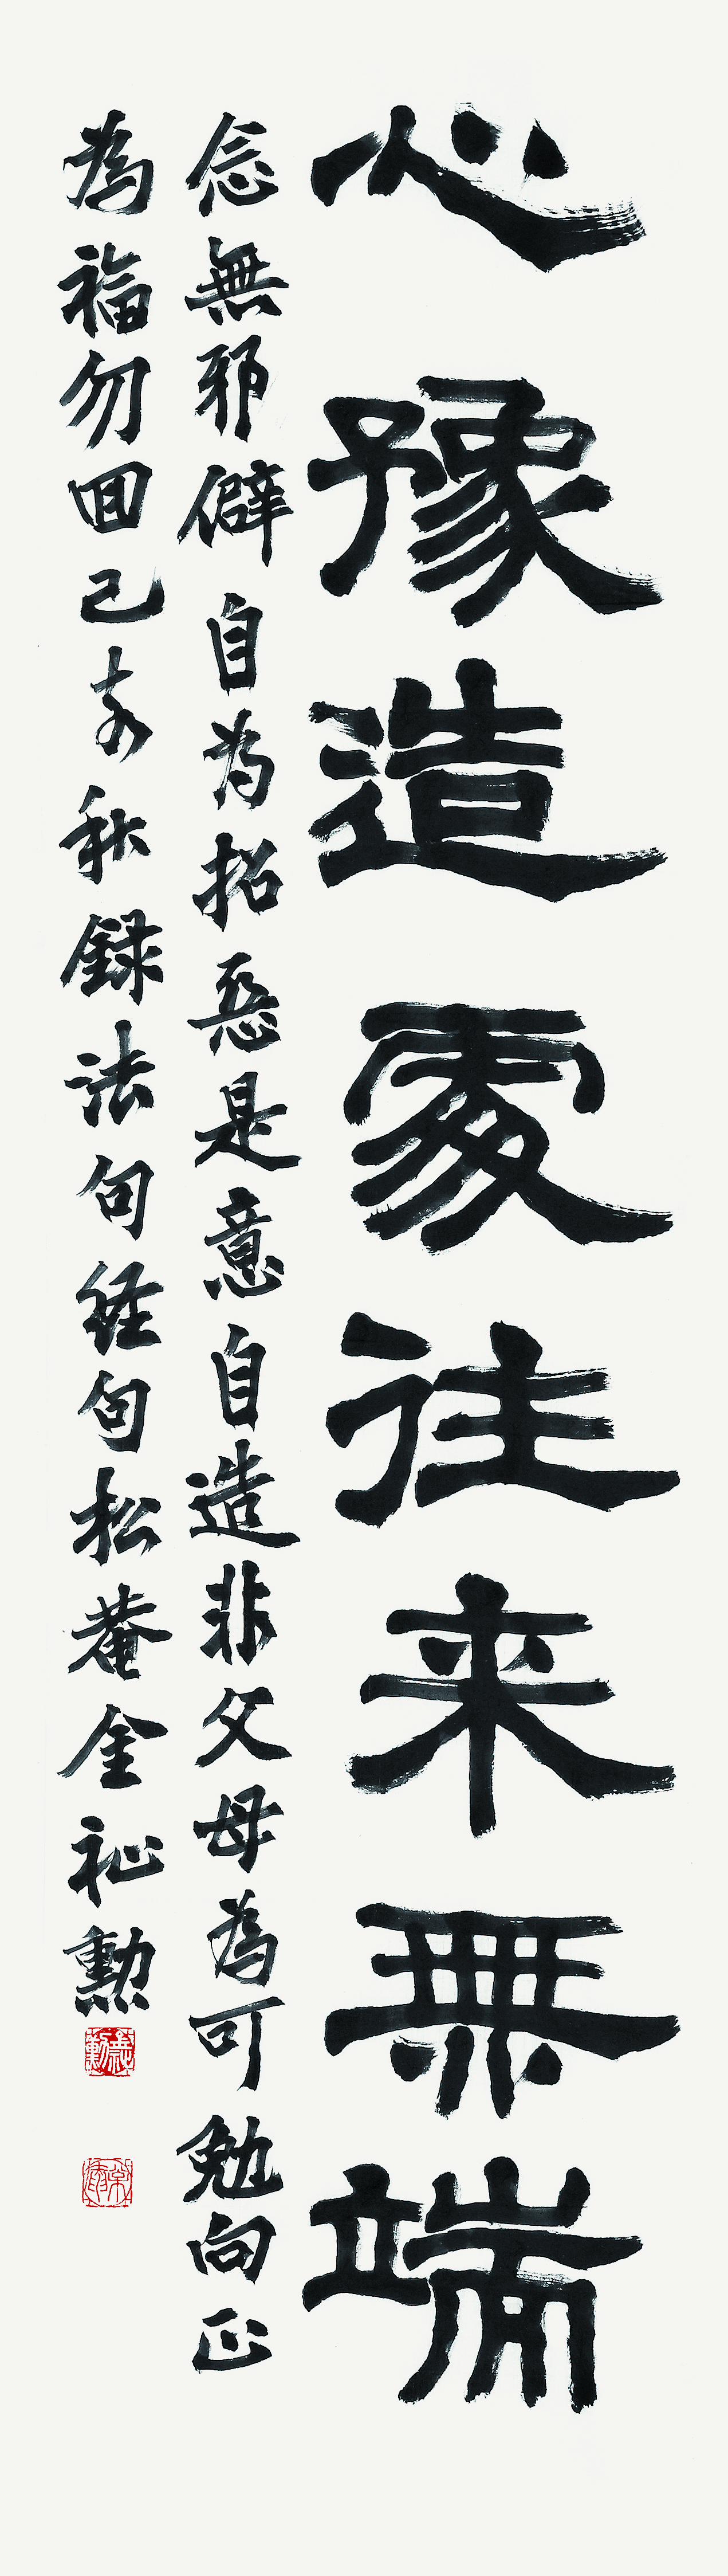 心豫造處往来無端
念無邪僻自为招惡是意自造非父母為可勉向正
為福勿囬己亥秋録法句経句松菴金祉勳